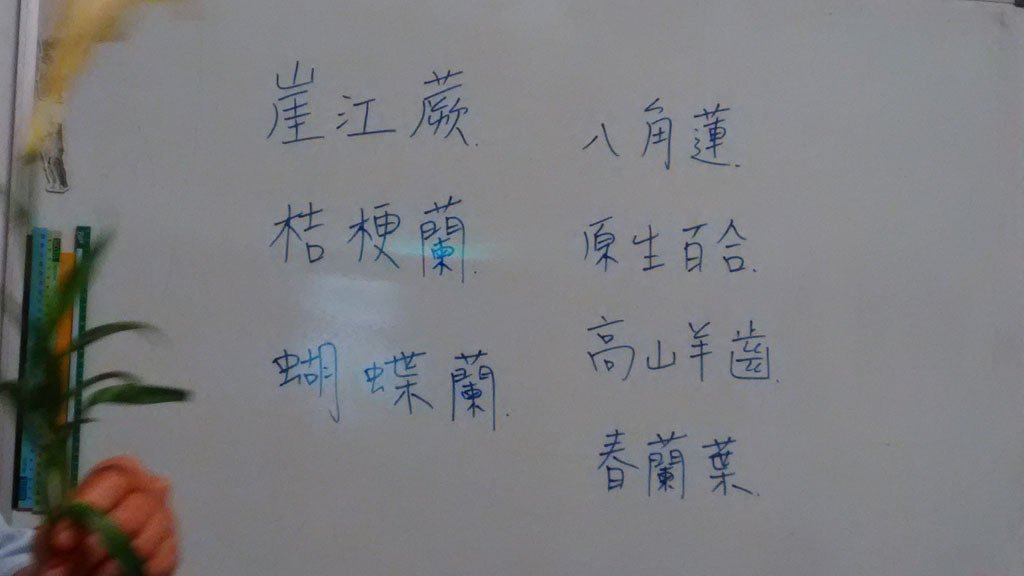 崖江蕨.
桔梗蘭.
蝴蝶蘭.
八角蓮.
原生百合.
高山羊齒.
春蘭葉.